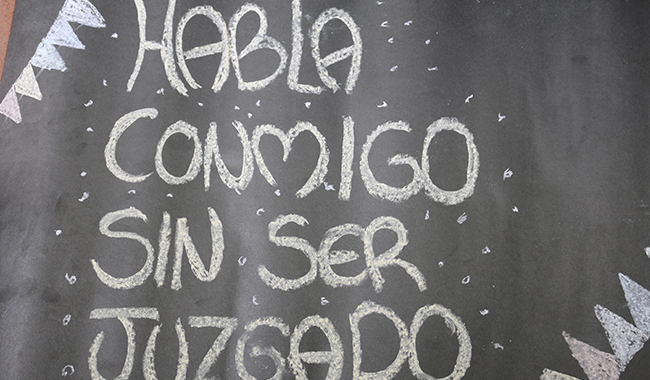 HABLA
CONMIGO
SIN SER
JUZGADO